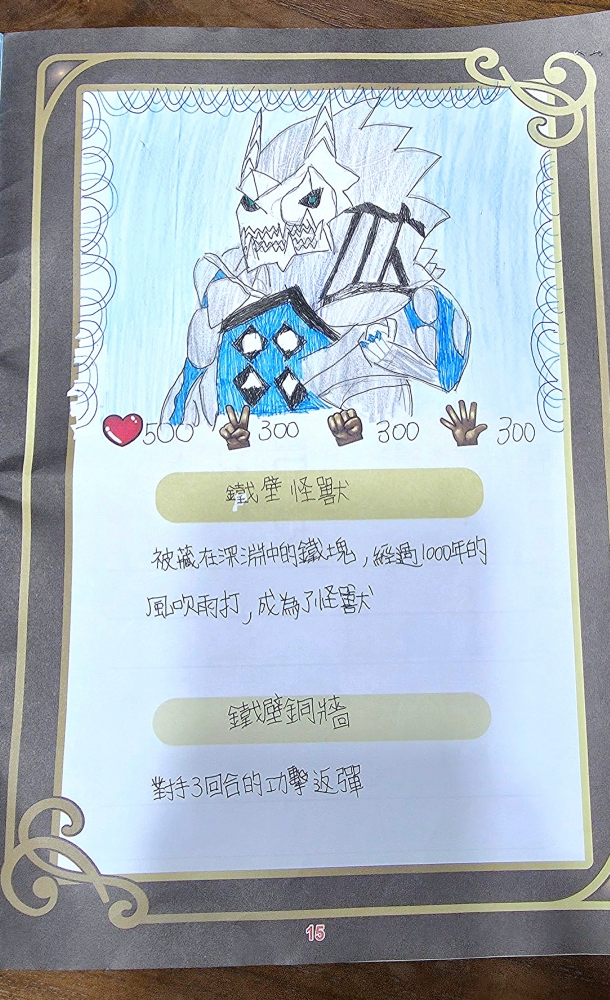 500 300 300 300
鐵壁怪獸
被藏在深淵中的鐵塊,經過1000年的
風吹雨打,成為了怪獸
鐵壁銅牆
對手3回合的功擊返彈
15